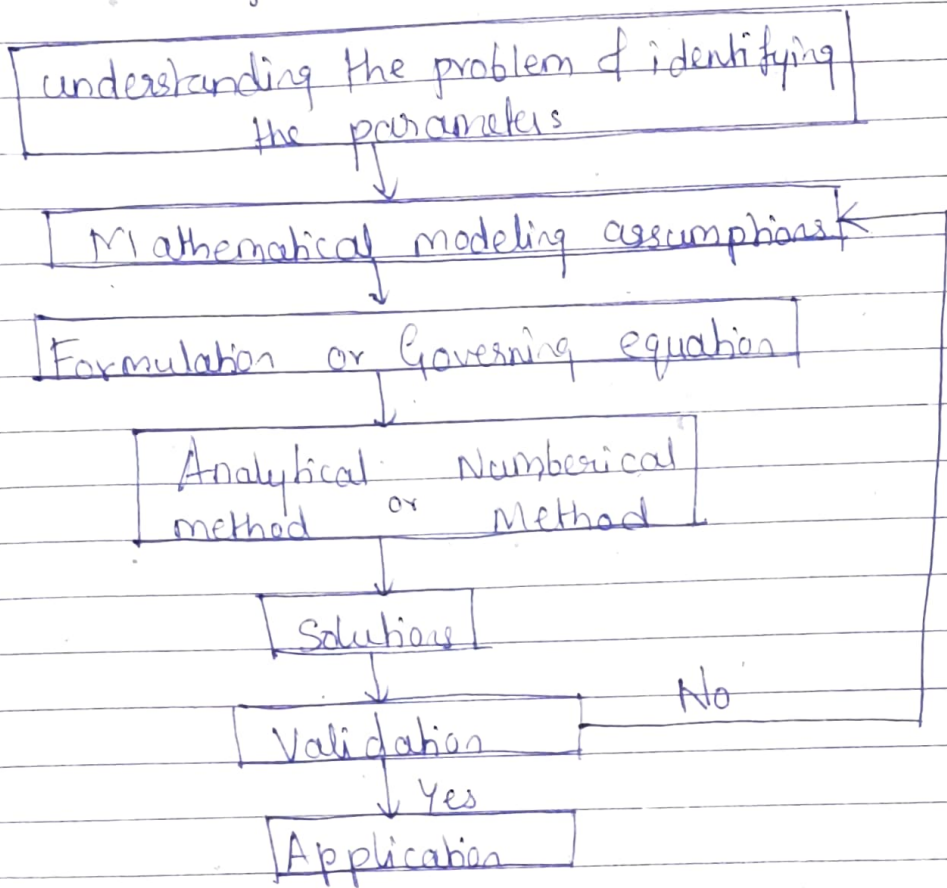 understanding the problem & identifying
the parameters
Mathematical modeling assumptions
Formulation or Governing equation
Analytical or Numberical
method Method
Solutions
Validation No
Yes
Application